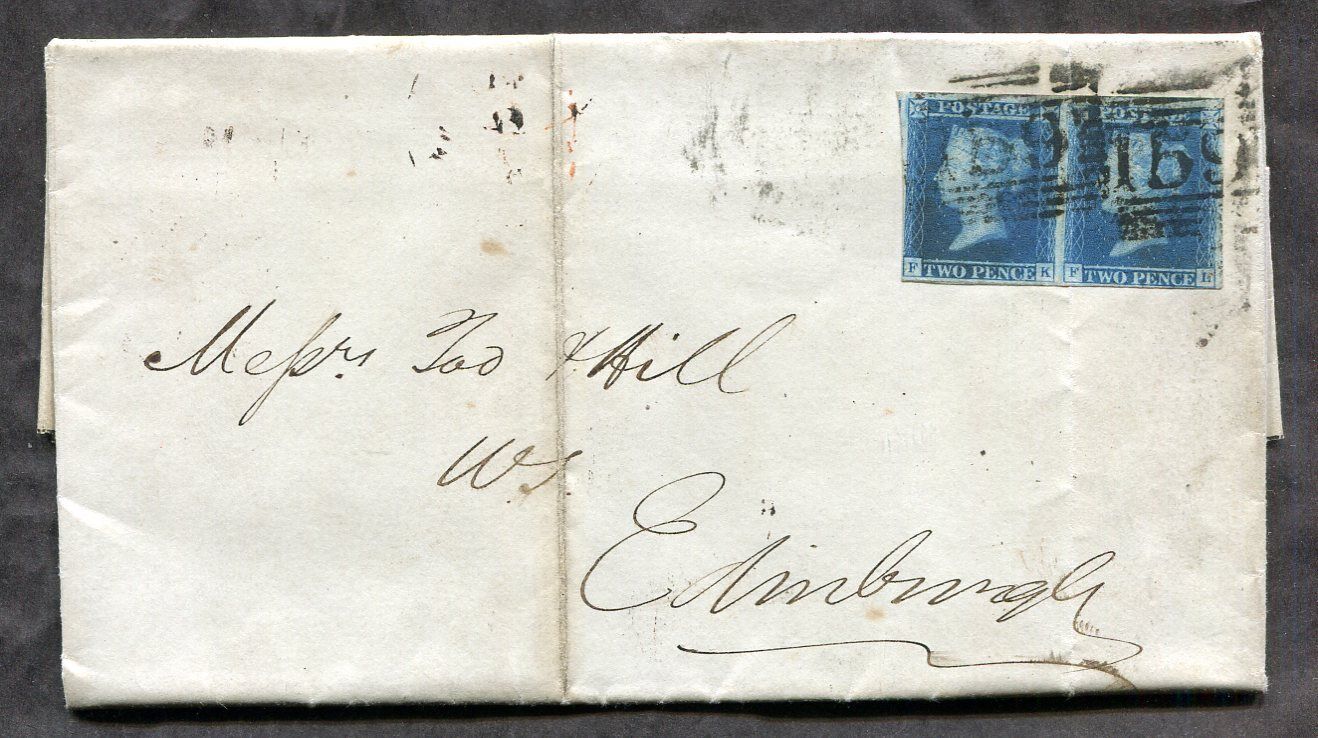 POSTAGE POSTAGE
159
F TWO PENCE K F TWO PENCE L
Messrs Tod & Hill
W.S.
Edinburgh